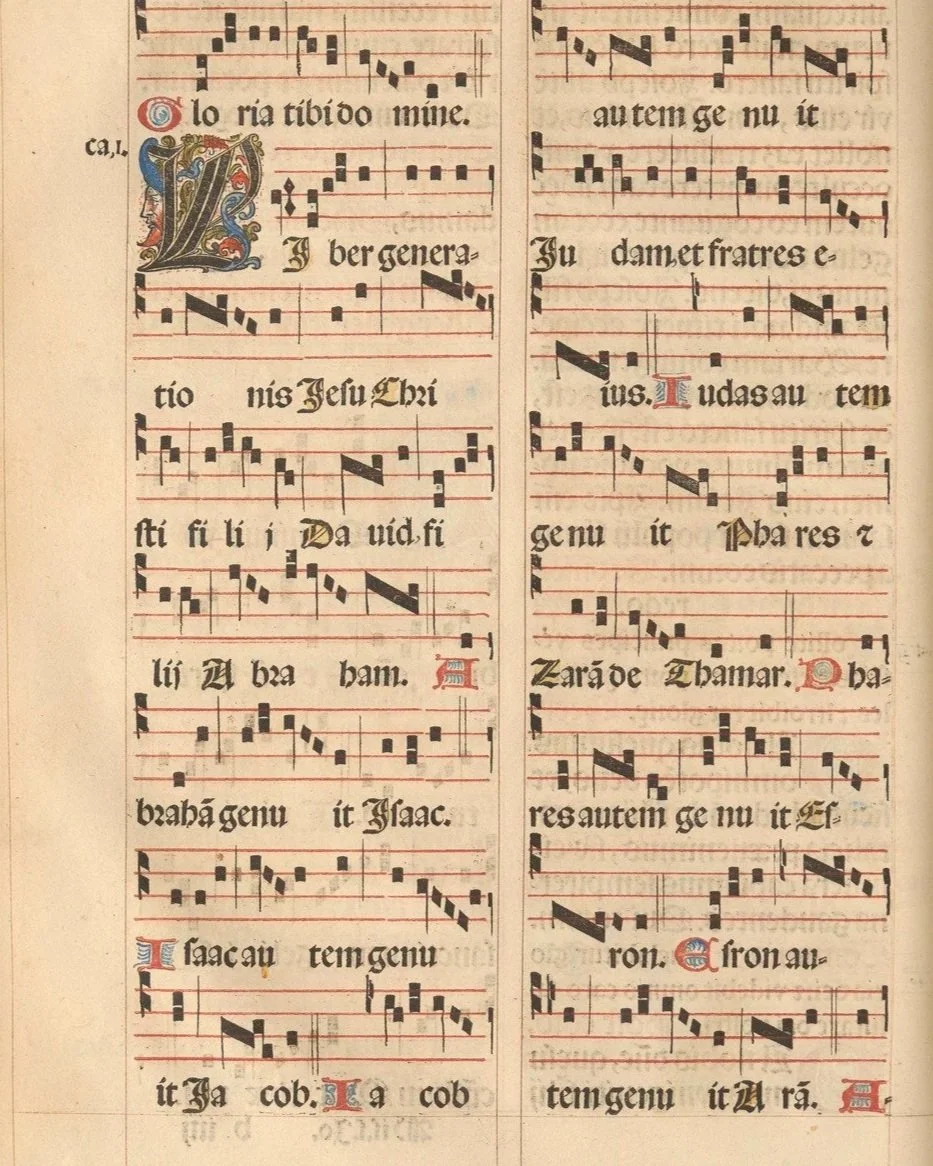 Glo ria tibi do mine.
ca,i.
LI ber genera-
tio nis Jesu Chri
sti fi li i Da uid, fi
lij A bra ham. A
brahã genu it Isaac.
Isaac au tem genu
it Ja cob. Ia cob
autem ge nu it
Ju dam, et fratres e-
ius. Iudas au tem
ge nu it Pha res ⁊
Zarã de Thamar. Pha-
res autem ge nu it Es-
ron. Esron au-
tem genu it A rã. A-